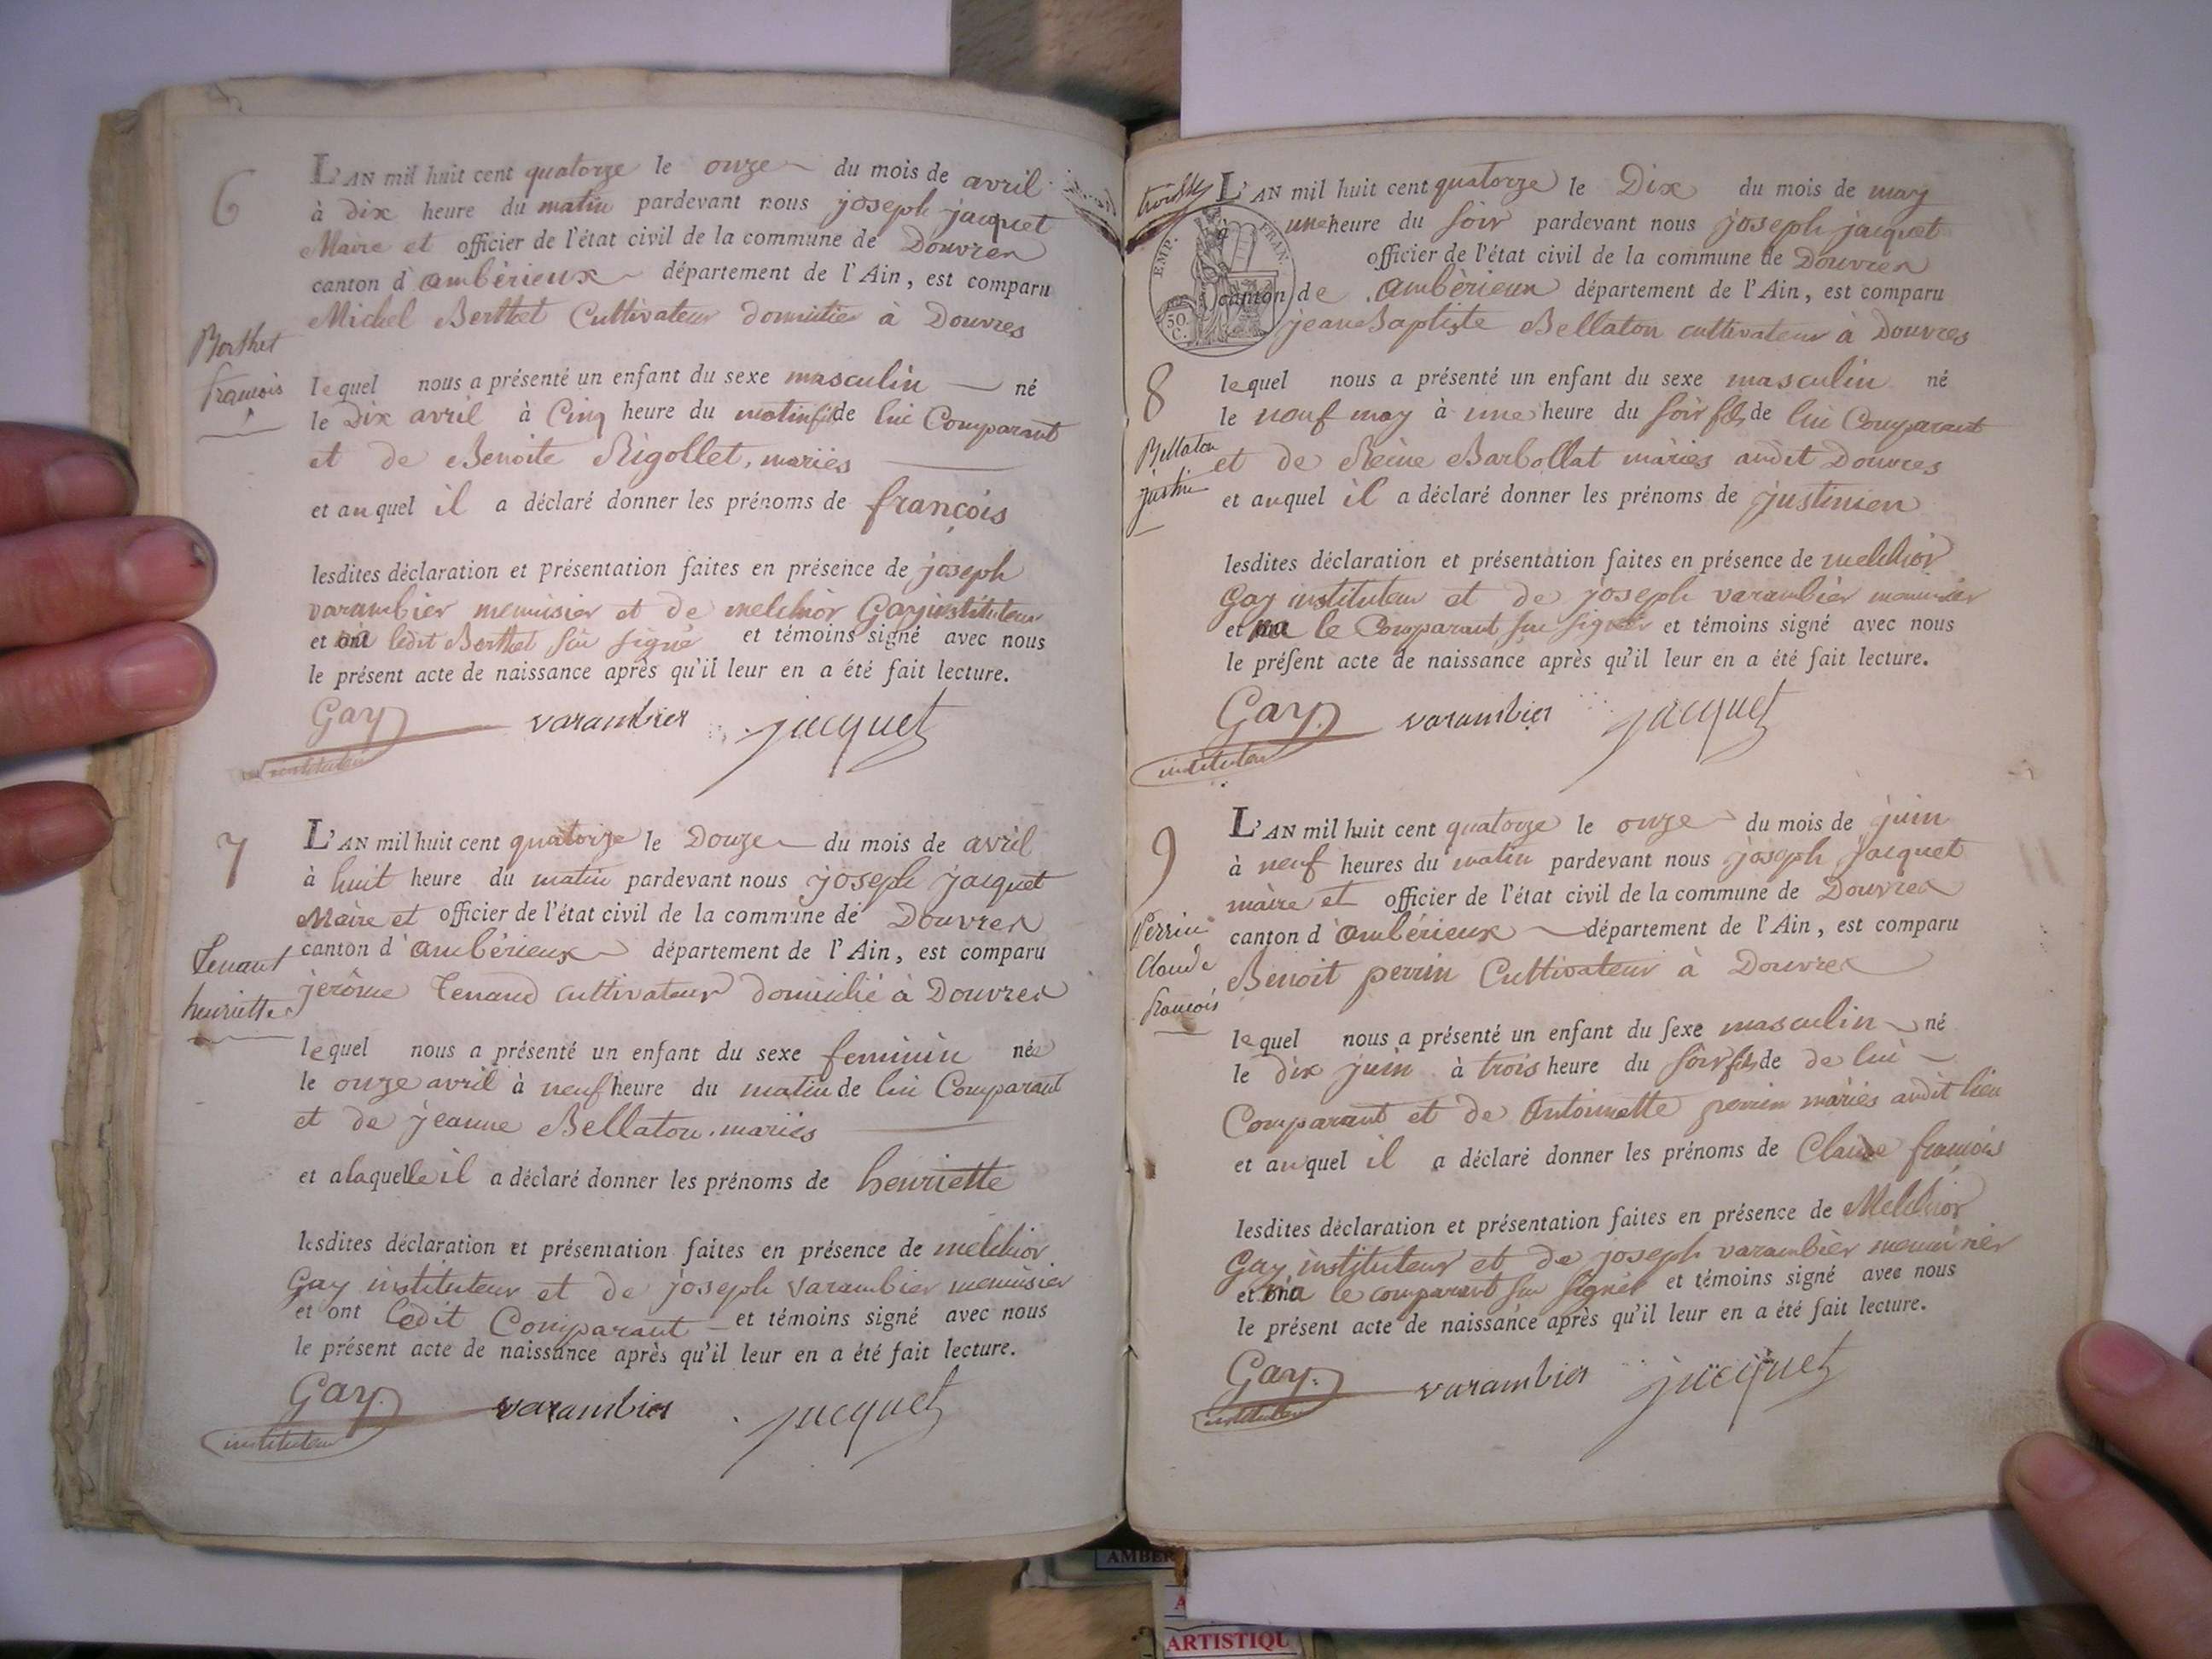 6
L'AN mil huit cent quatorze le onze du mois de avril
à dix heure du matin pardevant nous joseph jacquet
Maire et officier de l'état civil de la commune de Douvres
canton d'ambèrieux département de l'Ain, est comparu
Michel Berthet Cultivateur domicilié à Douvres
Berthet
françois
lequel nous a présenté un enfant du sexe masculin né
le Dix avril à Cinq heure du matin fils de lui Comparant
et de Benoite Rigollet, mariés
et auquel il a déclaré donner les prénoms de françois
lesdites déclaration et présentation faites en présence de joseph
varambier menuisier et de melchior Gay instituteur
et ledit Berthet sçu signé et témoins signé avec nous
le présent acte de naissance après qu'il leur en a été fait lecture.
Gay varambier jacquet
instituteur
7
L'AN mil huit cent quatorze le Douze du mois de avril
à huit heure du matin pardevant nous joseph jacquet
Maire et officier de l'état civil de la commune de Douvres
canton d'ambèrieux département de l'Ain, est comparu
jerôme Tenand cultivateur domicilié à Douvres
Tenant
henriette
lequel nous a présenté un enfant du sexe feminin née
le onze avril à neuf heure du matin de lui Comparant
et de jeanne Bellaton, mariés
et a laquelle il a déclaré donner les prénoms de henriette
lesdites déclaration et présentation faites en présence de melchior
Gay instituteur et de joseph varambier menuisier
et ont ledit Comparant et témoins signé avec nous
le présent acte de naissance après qu'il leur en a été fait lecture.
Gay. varambier jacquet
instituteur
L'AN mil huit cent quatorze le Dix du mois de may
à une heure du soir pardevant nous joseph jacquet
officier de l'état civil de la commune de Douvres
canton de ambèrieux département de l'Ain, est comparu
jean Baptiste Bellaton cultivateur à Douvres
EMP. FRAN.
50 C.
8
Bellaton
justin
lequel nous a présenté un enfant du sexe masculin né
le neuf may à une heure du soir fils de lui Comparant
et de Reine Barbollat mariés audit Douvres
et auquel il a déclaré donner les prénoms de justinien
lesdites déclaration et présentation faites en présence de melchior
Gay instituteur et de joseph varambier menuisier
et na le Comparant sçu signer et témoins signé avec nous
le présent acte de naissance après qu'il leur en a été fait lecture.
Gay. varambier jacquet
instituteur
9
L'AN mil huit cent quatorze le onze du mois de juin
à neuf heures du matin pardevant nous joseph jacquet
maire et officier de l'état civil de la commune de Douvres
canton d'ambérieux département de l'Ain, est comparu
Benoit perrin Cultivateur à Douvres
Perrin
Claude
françois
lequel nous a présenté un enfant du sexe masculin né
le dix juin à trois heure du soir fils de de lui
Comparant et de Antoinette perrin mariés audit lieu
et auquel il a déclaré donner les prénoms de Claude françois
lesdites déclaration et présentation faites en présence de Melchior
Gay instituteur et de joseph varambier menuisier
et n'a le comparant sçu signer et témoins signé avec nous
le présent acte de naissance après qu'il leur en a été fait lecture.
Gay. varambier jacquet
instituteur
AMBER
ARTISTIQU